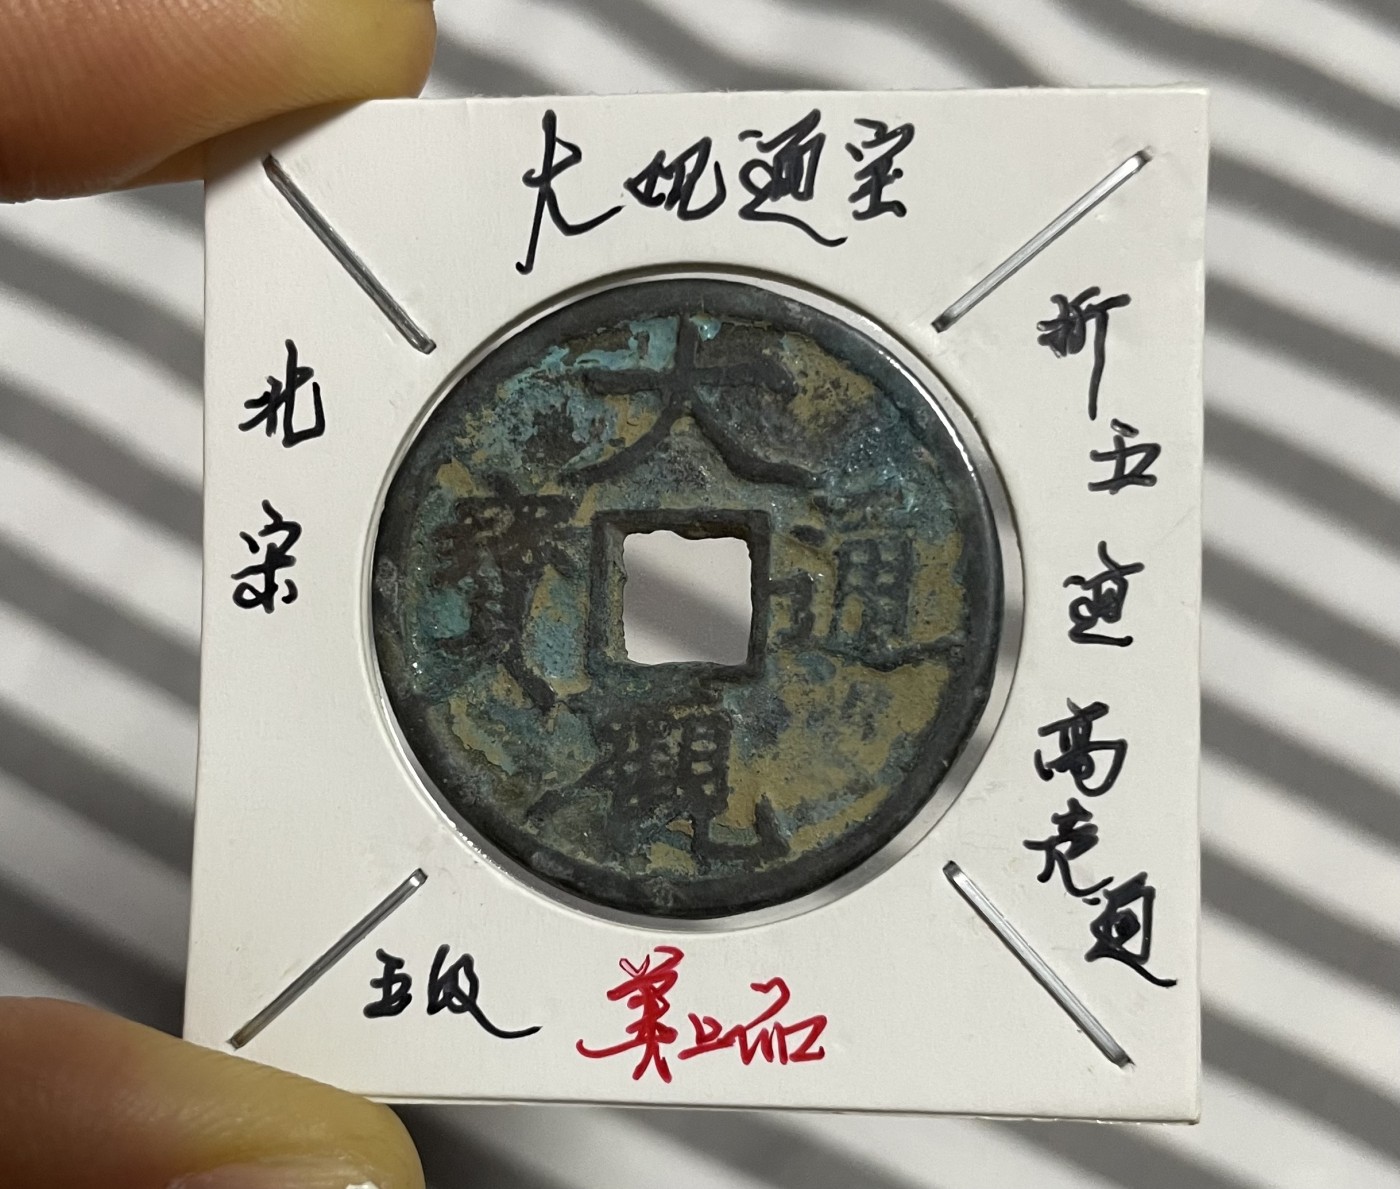 大观通宝
北宋
折五
高走通
大觀通寶
五级
美上品